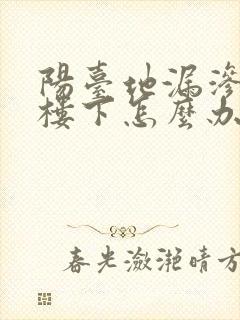 陽臺地漏滲
樓下怎麼办
春光瀲灩晴方